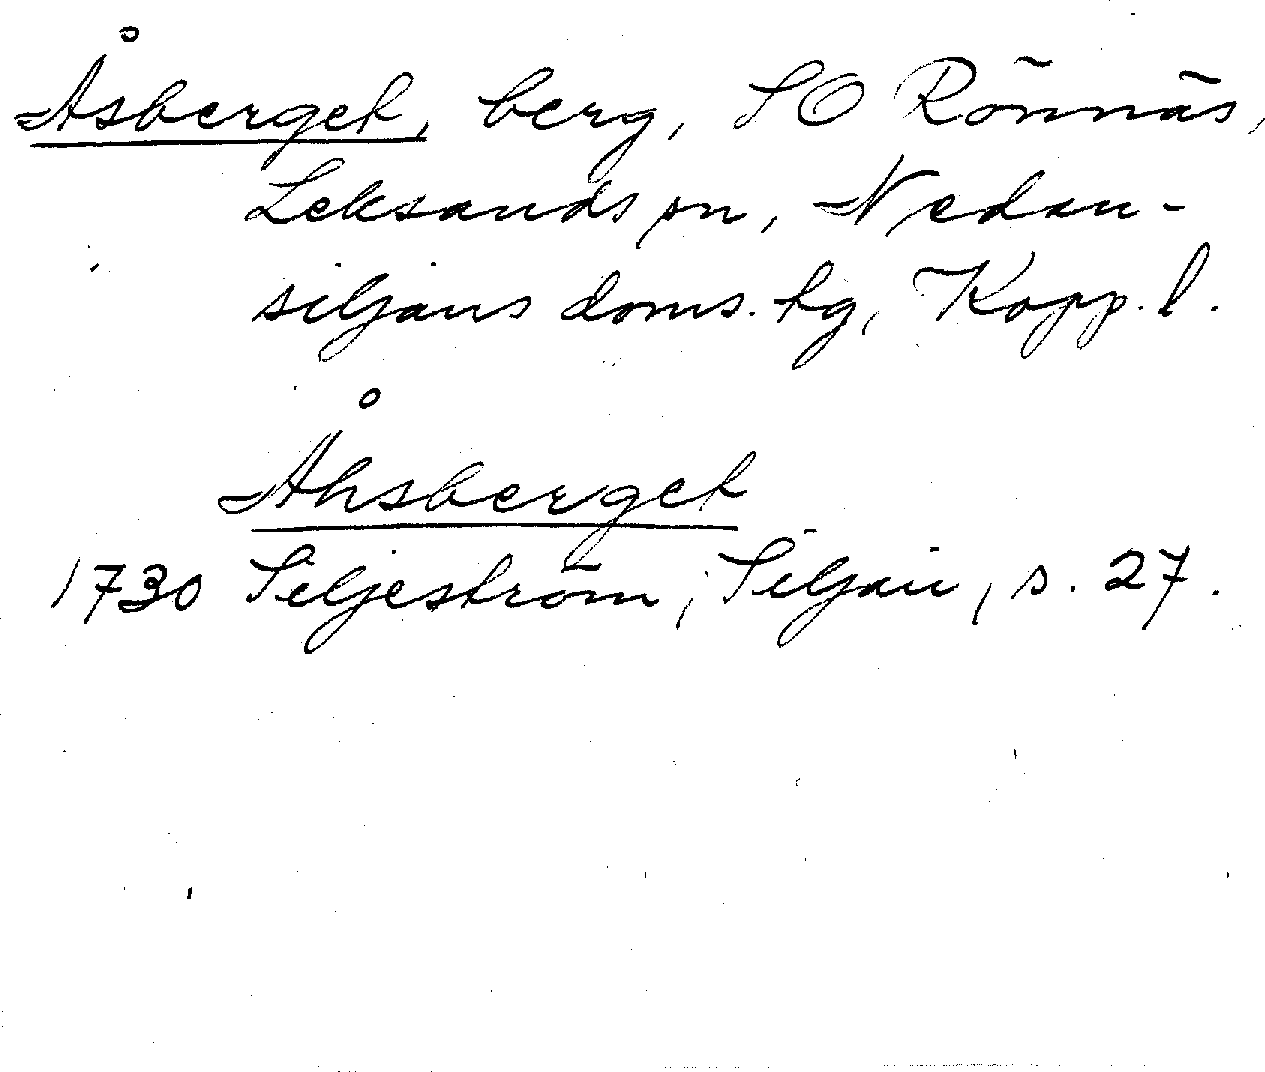 Åsberget, berg, SO Rönnäs,
Leksands sn, Nedan-
siljans doms. hg, Kopp. l.
Åhsberget
1730 Siljeström, Siljan, s. 27.